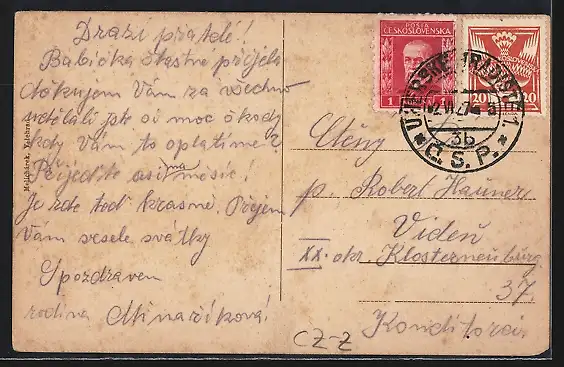 Drazí přátelé!
Babička šťastně přijela
děkujem Vám za všechno
udělali jste si moc škody
kdy Vám to oplatíme?
Přijeďte asi na měsíc!
Je zde teď krasně. Přejem
Vám veselé svátky
S pozdravem
rodina Minaříková!
POŠTA
ČESKOSLOVENSKA
1
20
20
UHERSKÉ HRADIŠTĚ 1
2.VI.27
3b
* Č. S. P. *
Ctěný
p. Robert Hauner
Videň
XX. okr. Klosterneuburg
37.
Konditorei
CZ-Z